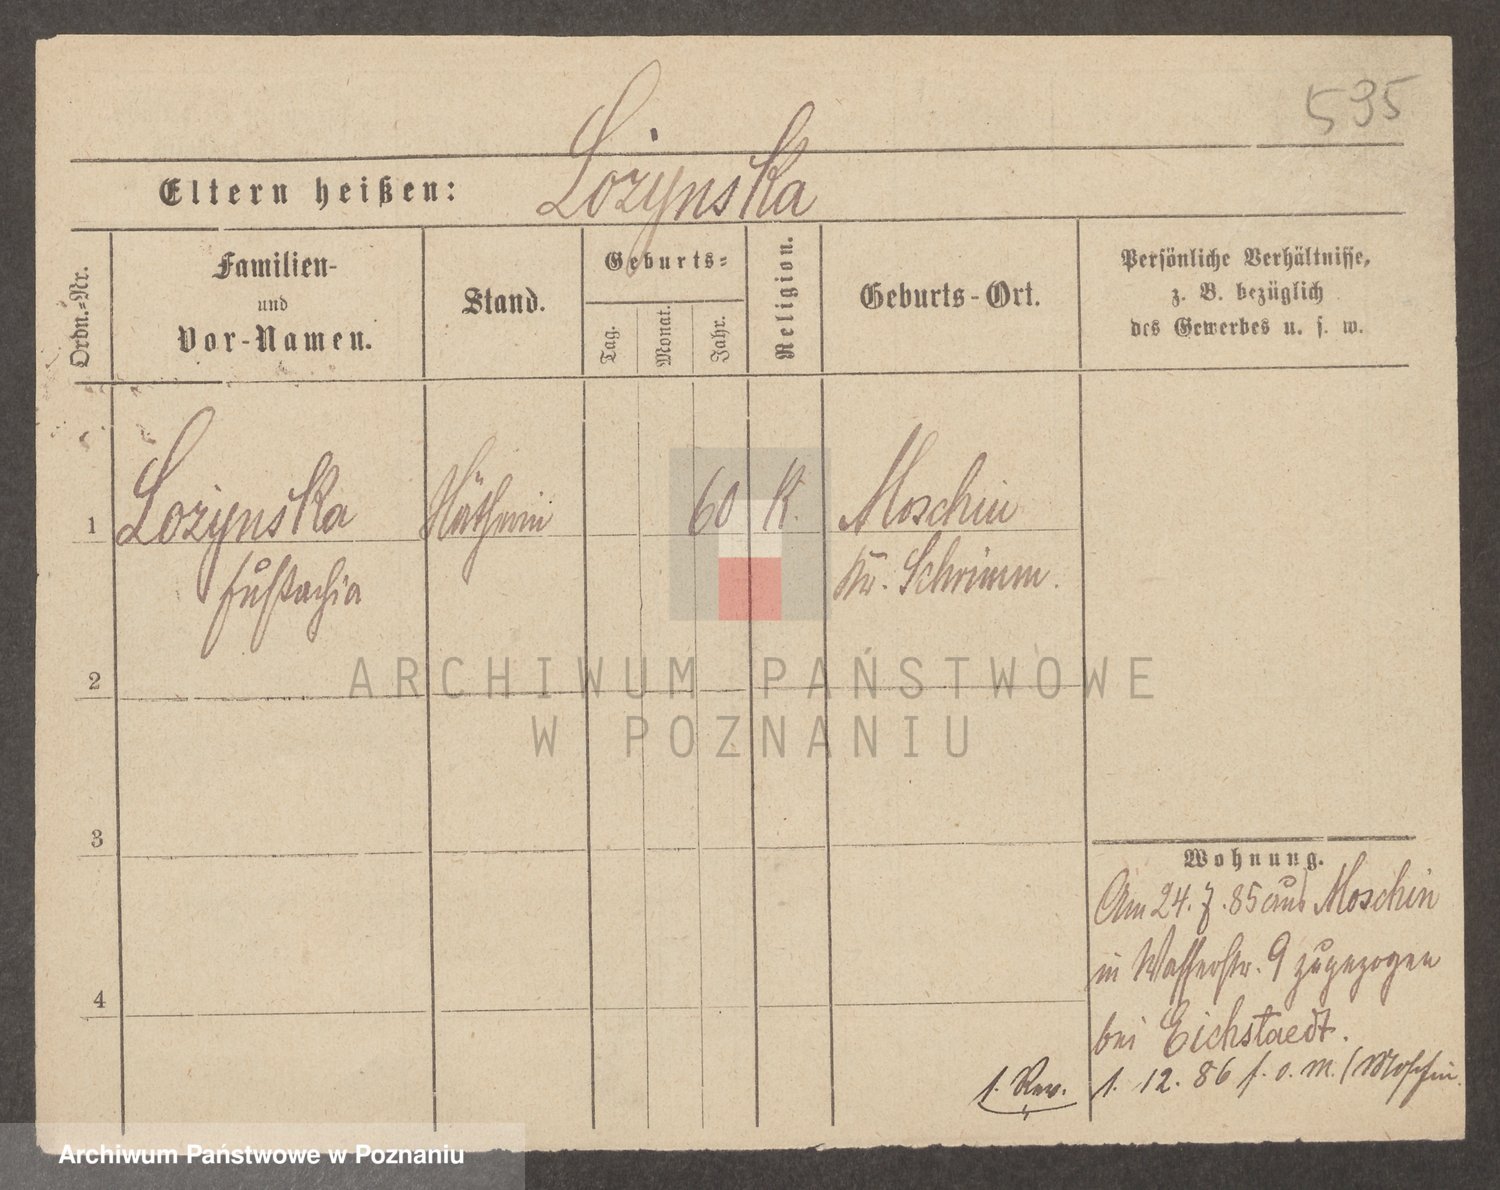 595
Łożynska
Eltern heißen:
Ordn.-Nr.
Familien-
und
Vor-Namen.
Stand.
Geburts-
Tag.
Monat.
Jahr.
Religion.
Geburts-Ort.
Persönliche Verhältnisse,
z. B. bezüglich
des Gewerbes u. s. w.
1
Łożynska
Eustachia
Näherin
60
K.
Moschin
Kr. Schrimm.
2
3
4
Wohnung.
Am 24. 7. 85 aus Moschin
in Wasserstr. 9 zugezogen
bei Eichstaedt.
1. Rev.
1. 12. 86 f. o. M. / Moschin.
ARCHIWUM PAŃSTWOWE
W POZNANIU
Archiwum Państwowe w Poznaniu